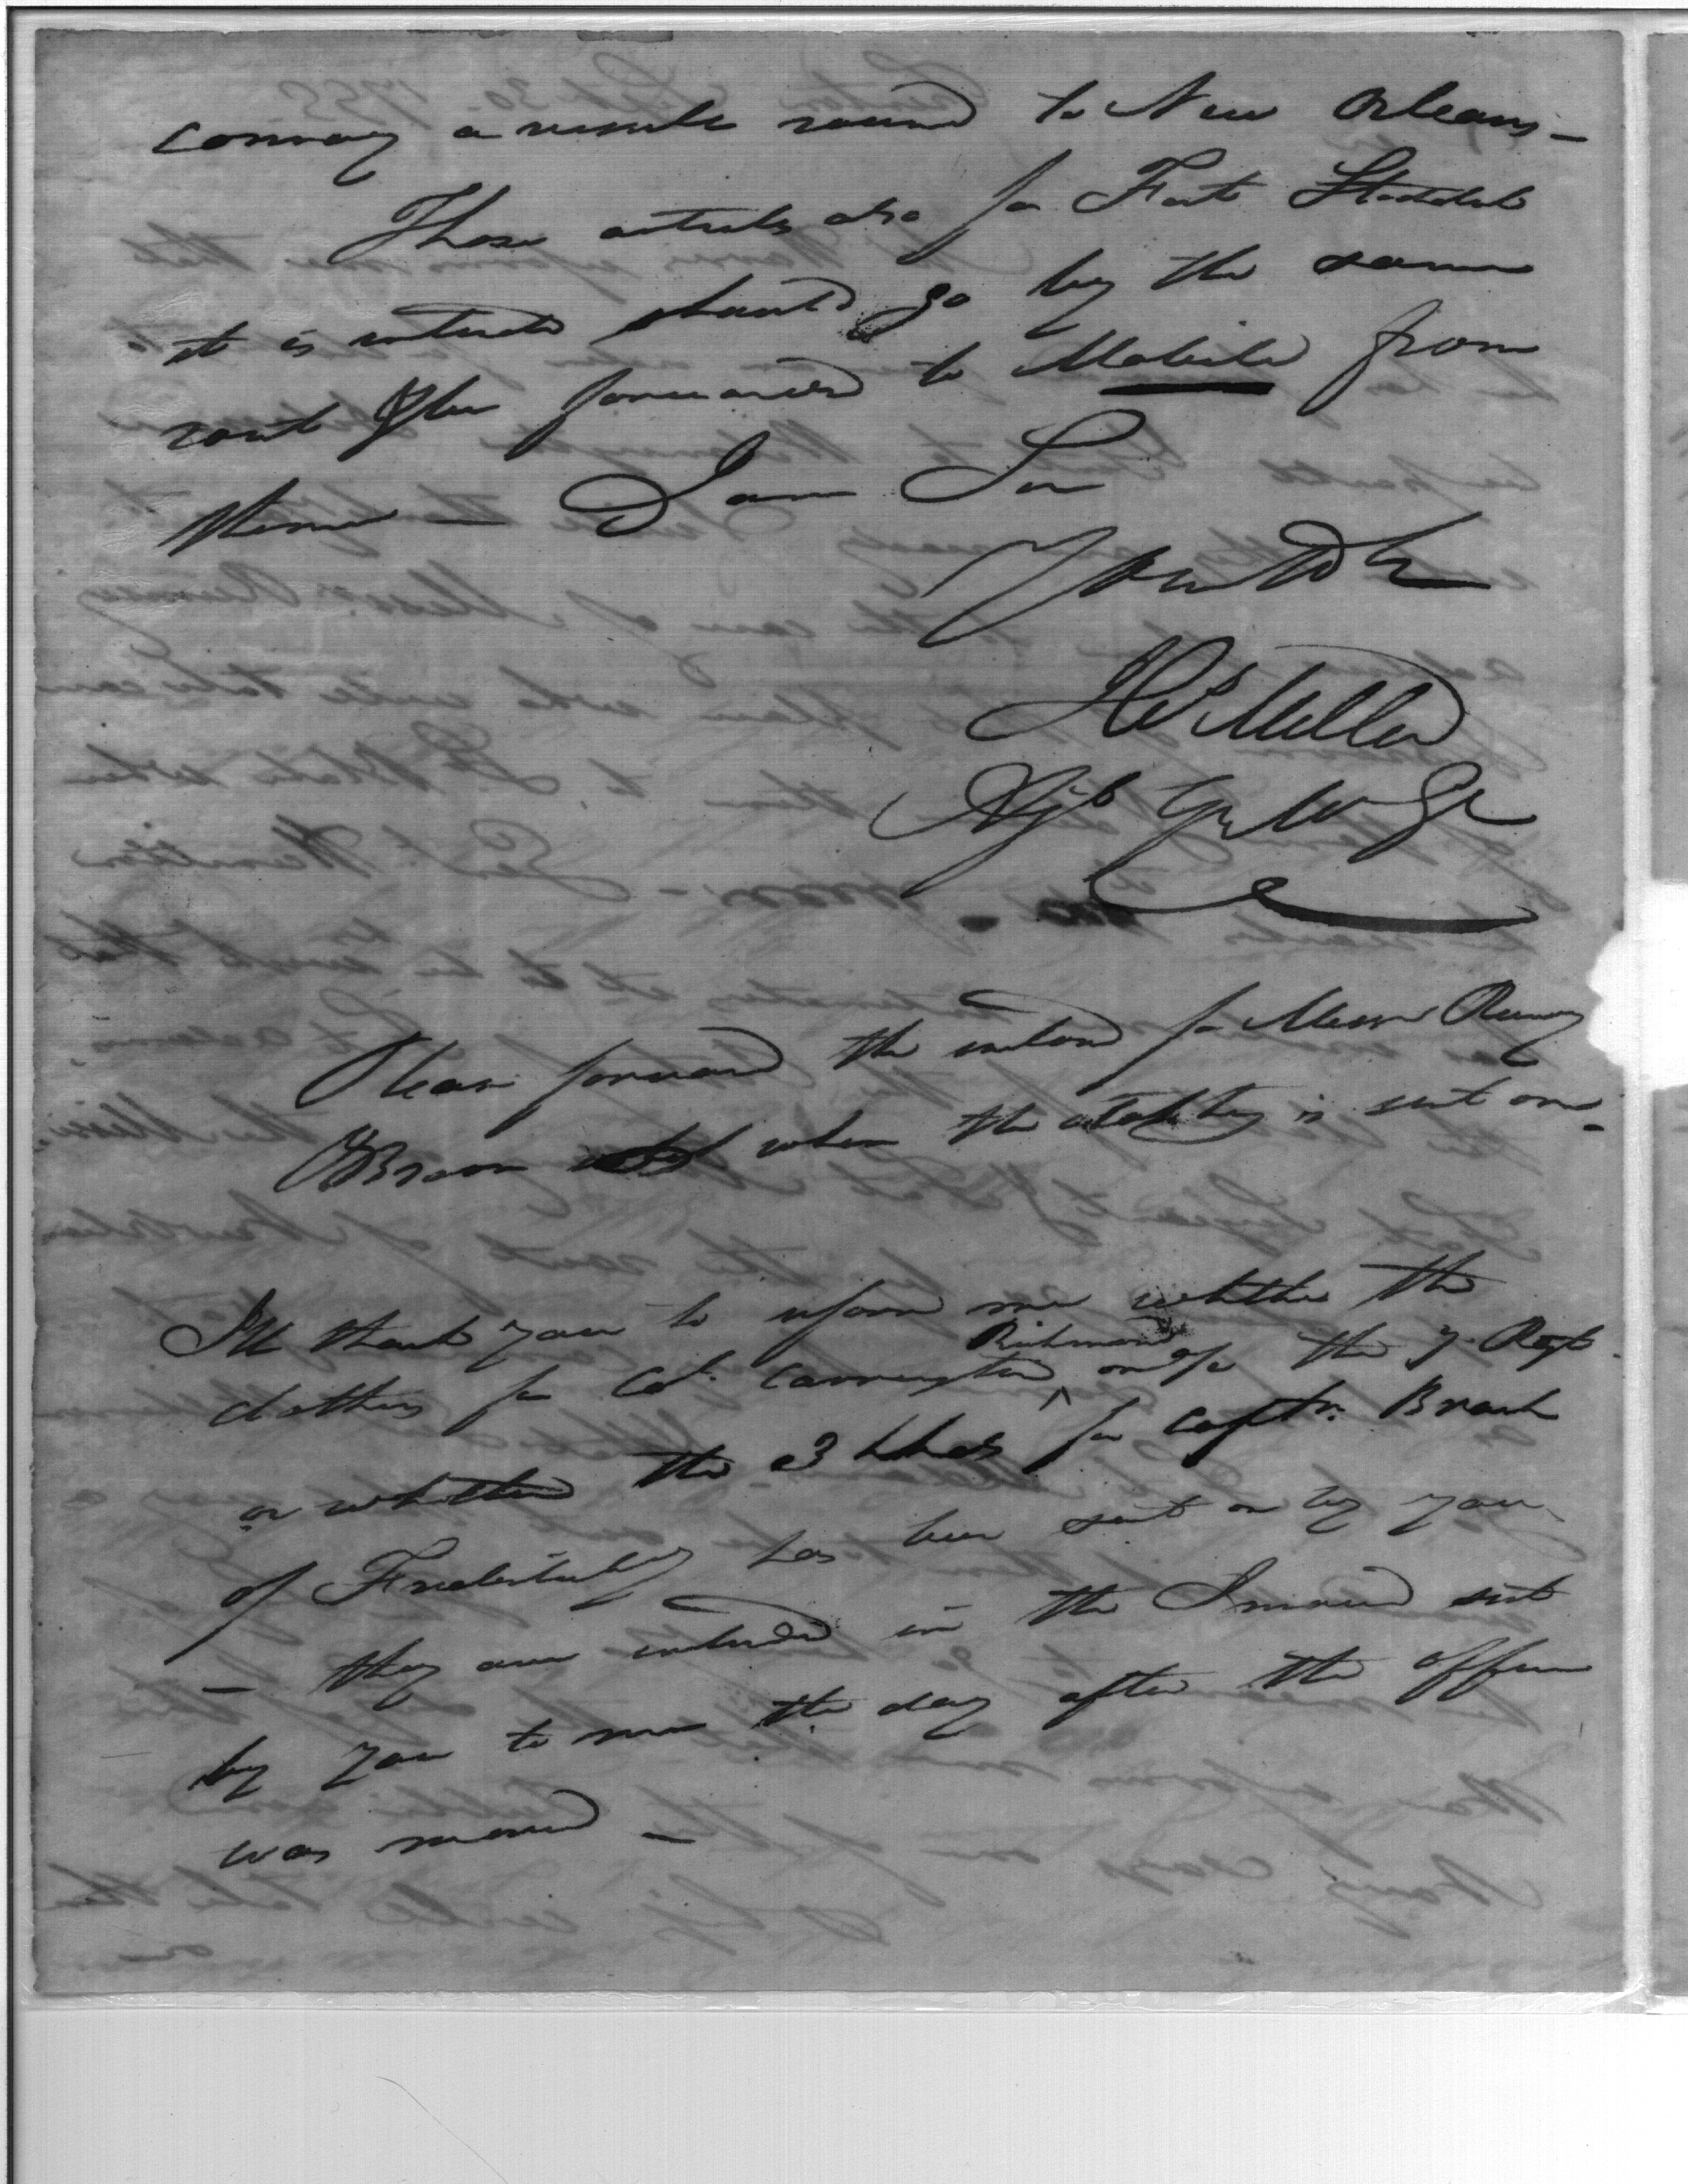 convoy a vessele round to New Orleans –
Those articles also for Fort Stoddert
it is intended should go by the same
rout & be forwarded to Mobile from
thence – I am Sir
Jn Miller
Please forward the enclosed for Messrs Rumney
& Brown when the clothing is sent on –
I'll thank you to inform me whether the
Richmond
clothing for Col. Carrington or for the 7. Regt.
or whether the 3 hhds for Captn. Brock
of Fredericksburg has been sent on by you
– they are included in the Invoice sent
by you to me the day after the office
was moved –